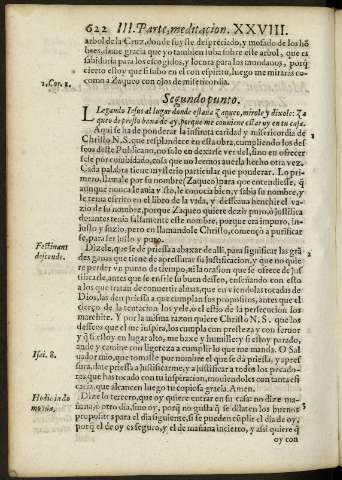 622 III. Parte, meditacion. XXVIII.
arbol de la Cruz, donde fuyste despreciado, y mofado de los hõ
bres, dame gracia que yo tambien suba sobre este arbol, que es
1. Cor. 1. sabiduria para los escogidos, y locura para los mundanos, porq̃
cierto estoy que si subo en el con espiritu, luego me miraràs co-
como a Zaqueo con ojos de misericordia.
Segundo punto.
LLegando Iesus al lugar donde estaua Zaqueo, mirole y dixole: Za
queo desciende presto de ay, porque me conuiene estar oy en tu casa.
Aqui se ha de ponderar la infinita caridad y misericordia de
Christo N. S. que resplandece en esta obra, cumpliendo los des-
seos deste Publicano, no solo en dexarse ver del, sino en ofrecer
sele por combidado, cosa que no leemos auerla hecho otra vez.
Cada palabra tiene mysterio particular que ponderar. Lo pri
mero, llamale por su nombre (Zaqueo) para que entendiesse, q̃
aunque nunca le auia visto, le conocia bien, y sabia su nombre, y
le tenia escrito en el libro de la vida, y desseaua henchir el va-
zio de su nombre, porque Zaqueo quiere dezir puro ò justific.
de antes tenia falsamente este nombre, porque era impuro, inju-
justo y suzio, pero en llamandole Christo, començò a purificar
se, para ser justo y puro.
Festinans descende. Dizele, que se dè priessa a abaxar de alli, para significar las grã
des ganas que tiene de apressurar su justificacion, y que no quie
re perder vn punto de tiempo, ni la ocasion que se ofrece de jus
tificarle, antes que se enfrie su buen desseo, enseñando con esto
a los que tratan de conuertirse, que en viendolas tocadas de
Dios, las den priessa a que cumplan sus propositos, antes que el
cierço de la tentacion los yele, ò el estio de la persecucion los
marchite. Y por la misma razon quiere Christo N. S. que los
desseos que el me inspira, los cumpla con presteza y con feruor
y q̃ si estoy en lugar alto, me baxe y humille; y si estoy parado,
ande y camine con ligereza a cumplir lo que me manda. O Sal
Isai. 8. uador mio, que tomaste por nombre el que se dà priessa, y apres
sura, date priessa a justificarme, y a justificar a todos los pecado-
res que has tocado con tu inspiracion, mouiendoles con tanta efi
cacia, que alcancen luego tu copiosa gracia. Amen.
Hodie in domo tua. Dize lo tercero, que oy quiere entrar en su casa no dize ma-
ñana, ò otro dia, sino oy, porq̃ no gusta q̃ se dilaten los buenos
propositos para el dia siguiente, si se pueden cũplir el dia de oy,
porq̃ el de oy es seguro, y el de mañana incierto, y assi quiere q̃
oy con